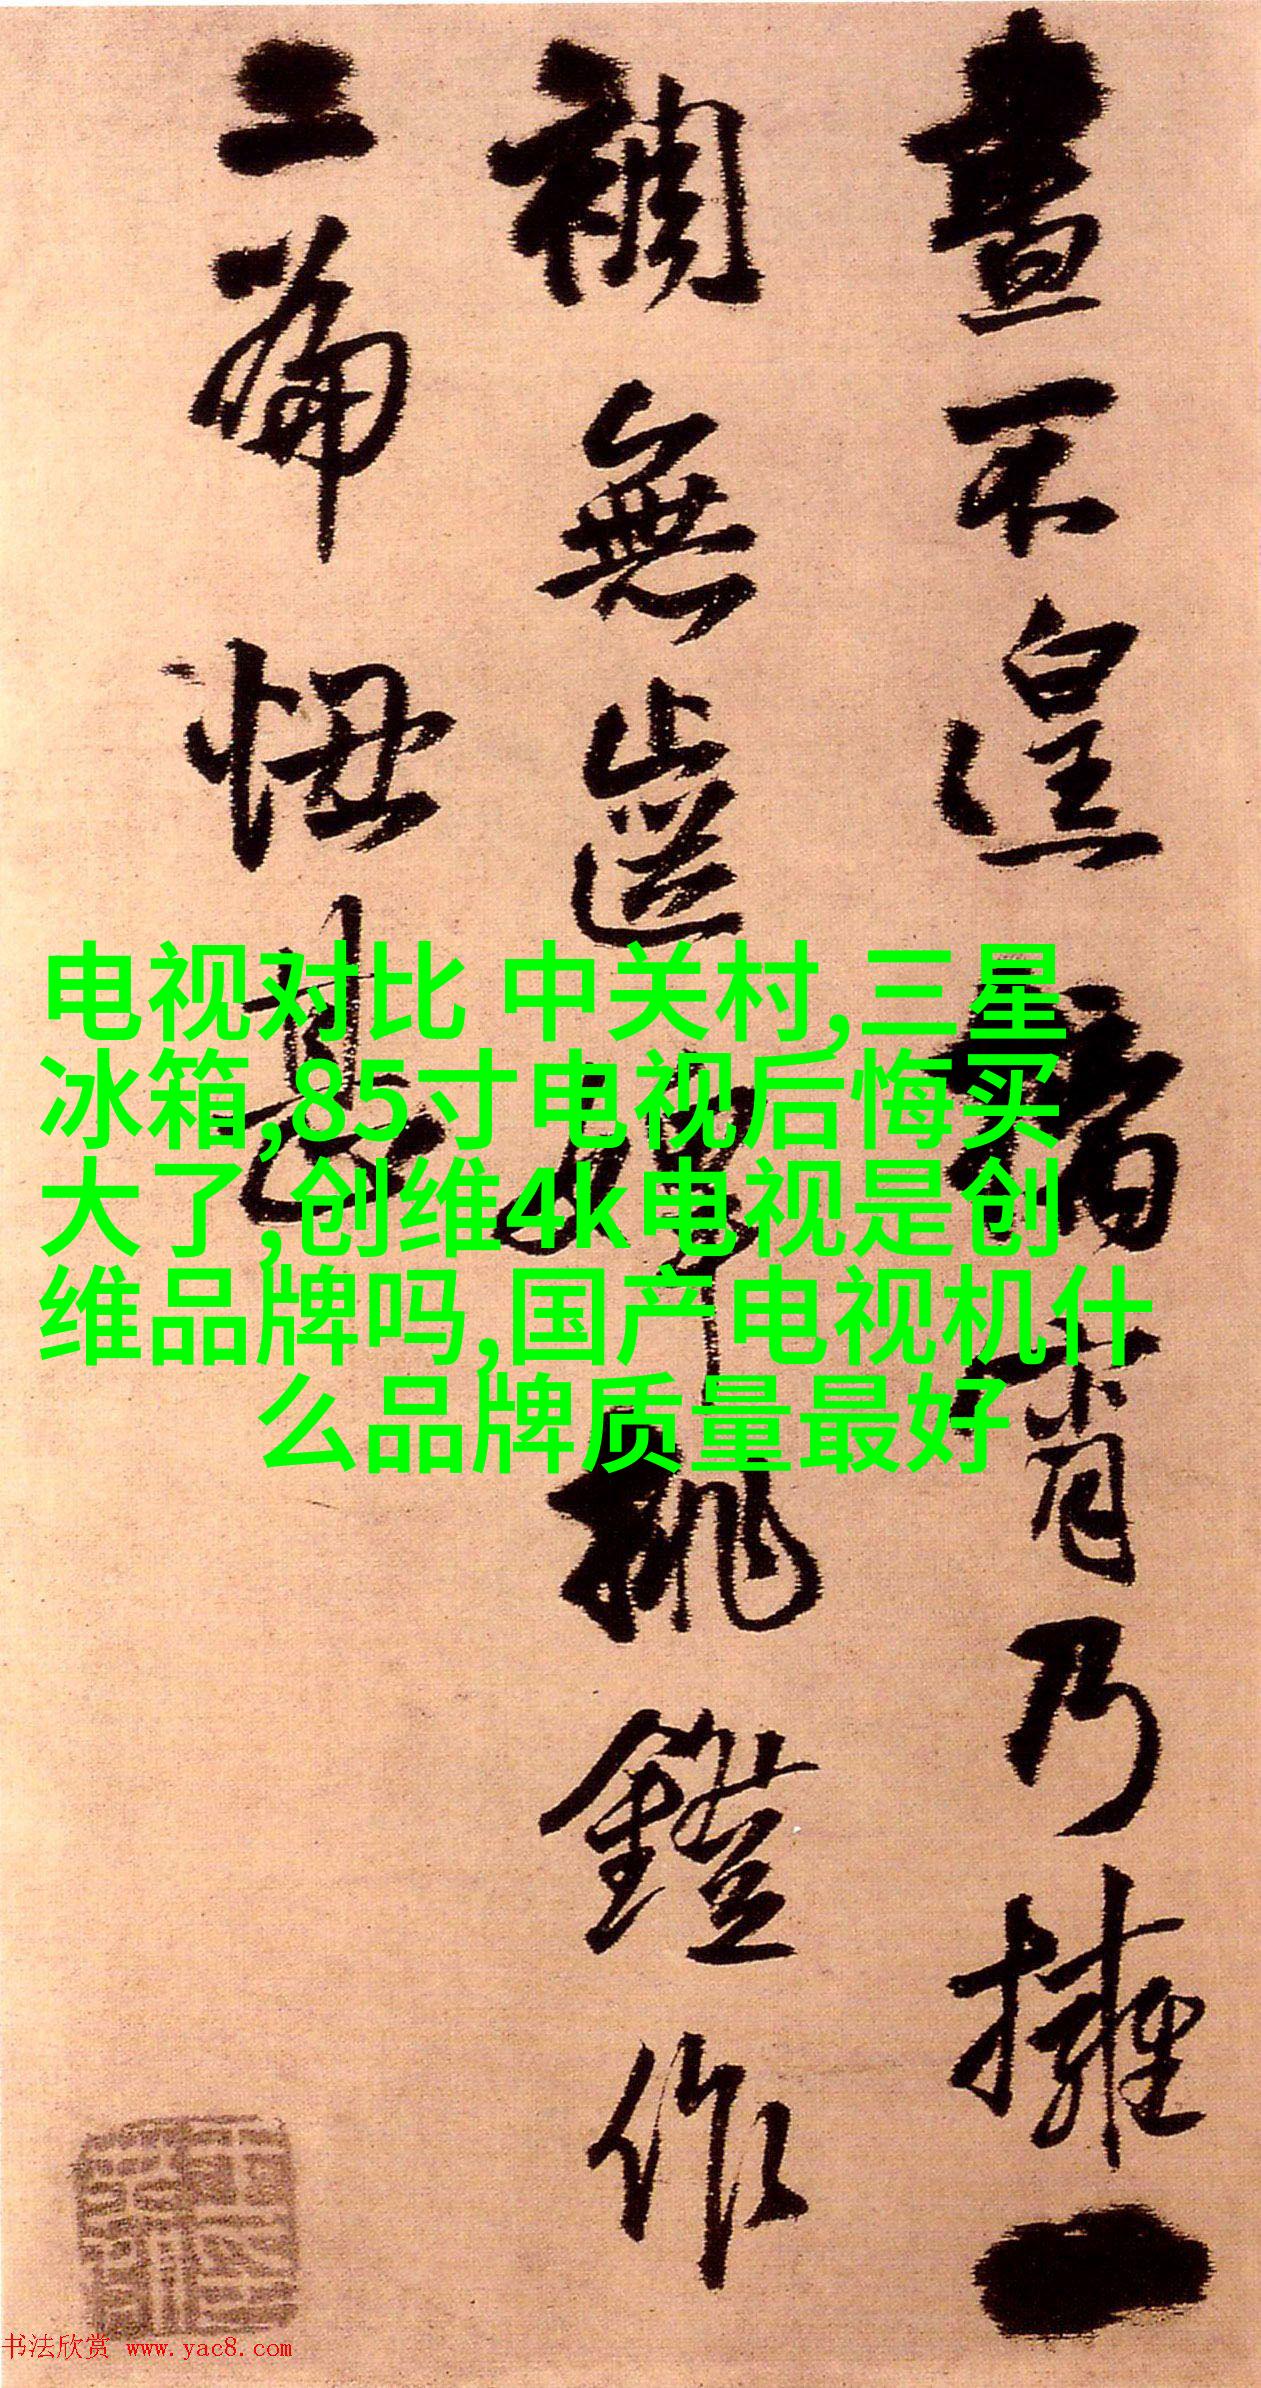 晝不遑宵乃擁一
裯無齒婢挑鐙作
篇甚
电视对比 中关村,三星
冰箱,85寸电视后悔买
大了,创维4k电视是创
维品牌吗,国产电视机什
么品牌质量最好
书法欣赏 www.yac8.com